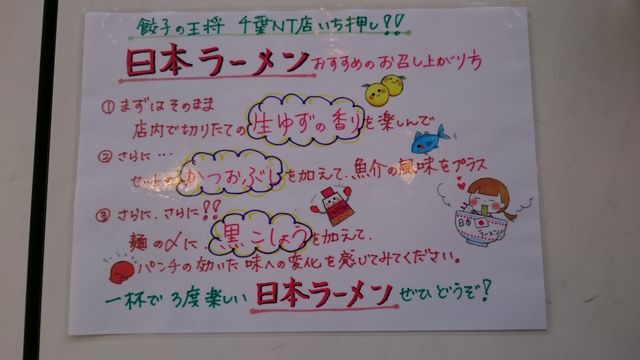 餃子の王将 千葉NT店いち押し!!
日本ラーメンおすすめのお召し上がり方
①まずはそのまま
店内で切りたての生ゆずの香りを楽しんで
②さらに…
セットのかつおぶしを加えて、魚介の風味をプラス
③さらに、さらに!!
麺の〆に、黒こしょうを加えて、
パンチの効いた味への変化を感じてみてください。
日本ラーメン
一杯で3度楽しい日本ラーメンぜひどうぞ!